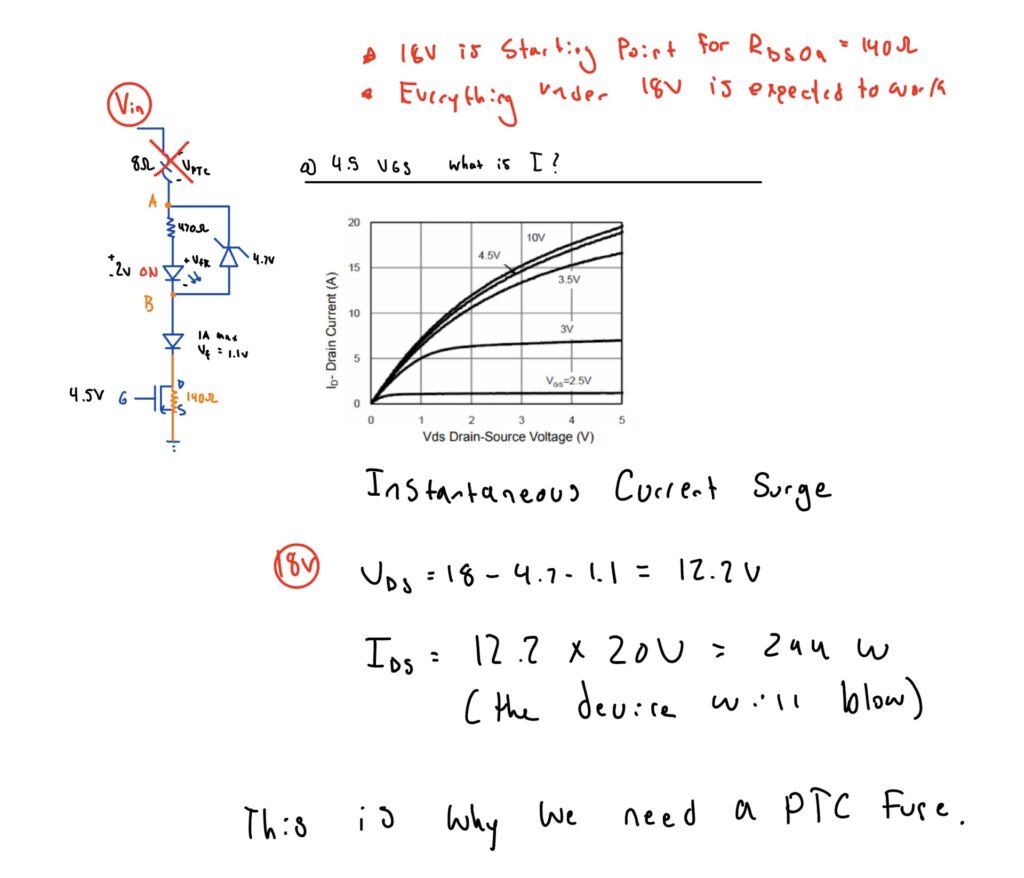 • 18V is Starting Point for RDSOn = 140Ω
• Everything under 18V is expected to work
Vin
8Ω
+
VPTC
-
A
470Ω
+
-
2V
ON
+ VFR
-
4.7V
B
1A max
Vf = 1.1V
4.5V
G
D
140Ω
S
a) 4.5 VGS what is I?
20
15
10
5
0
ID- Drain Current (A)
10V
4.5V
3.5V
3V
VGS=2.5V
0 1 2 3 4 5
Vds Drain-Source Voltage (V)
Instantaneous Current Surge
18V
VDS = 18 - 4.7 - 1.1 = 12.2V
IDS = 12.2 x 20V = 244 W
(the device will blow)
This is why we need a PTC Fuse.